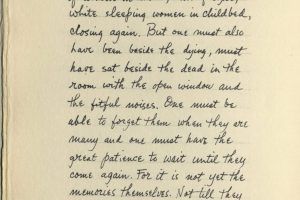 white sleeping women in childbed,
closing again. But one must also
have been beside the dying, must
have sat beside the dead in the
room with the open window and
the fitful noises. One must be
able to forget them when they are
many and one must have the
great patience to wait until they
come again. For it is not yet the
memories themselves. Not till they